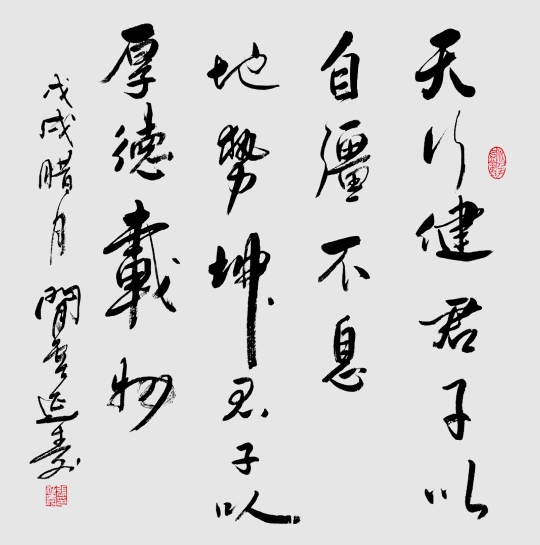 天行健君子以
自彊不息
地勢坤君子以
厚德載物
戊戌腊月閒雲延壽